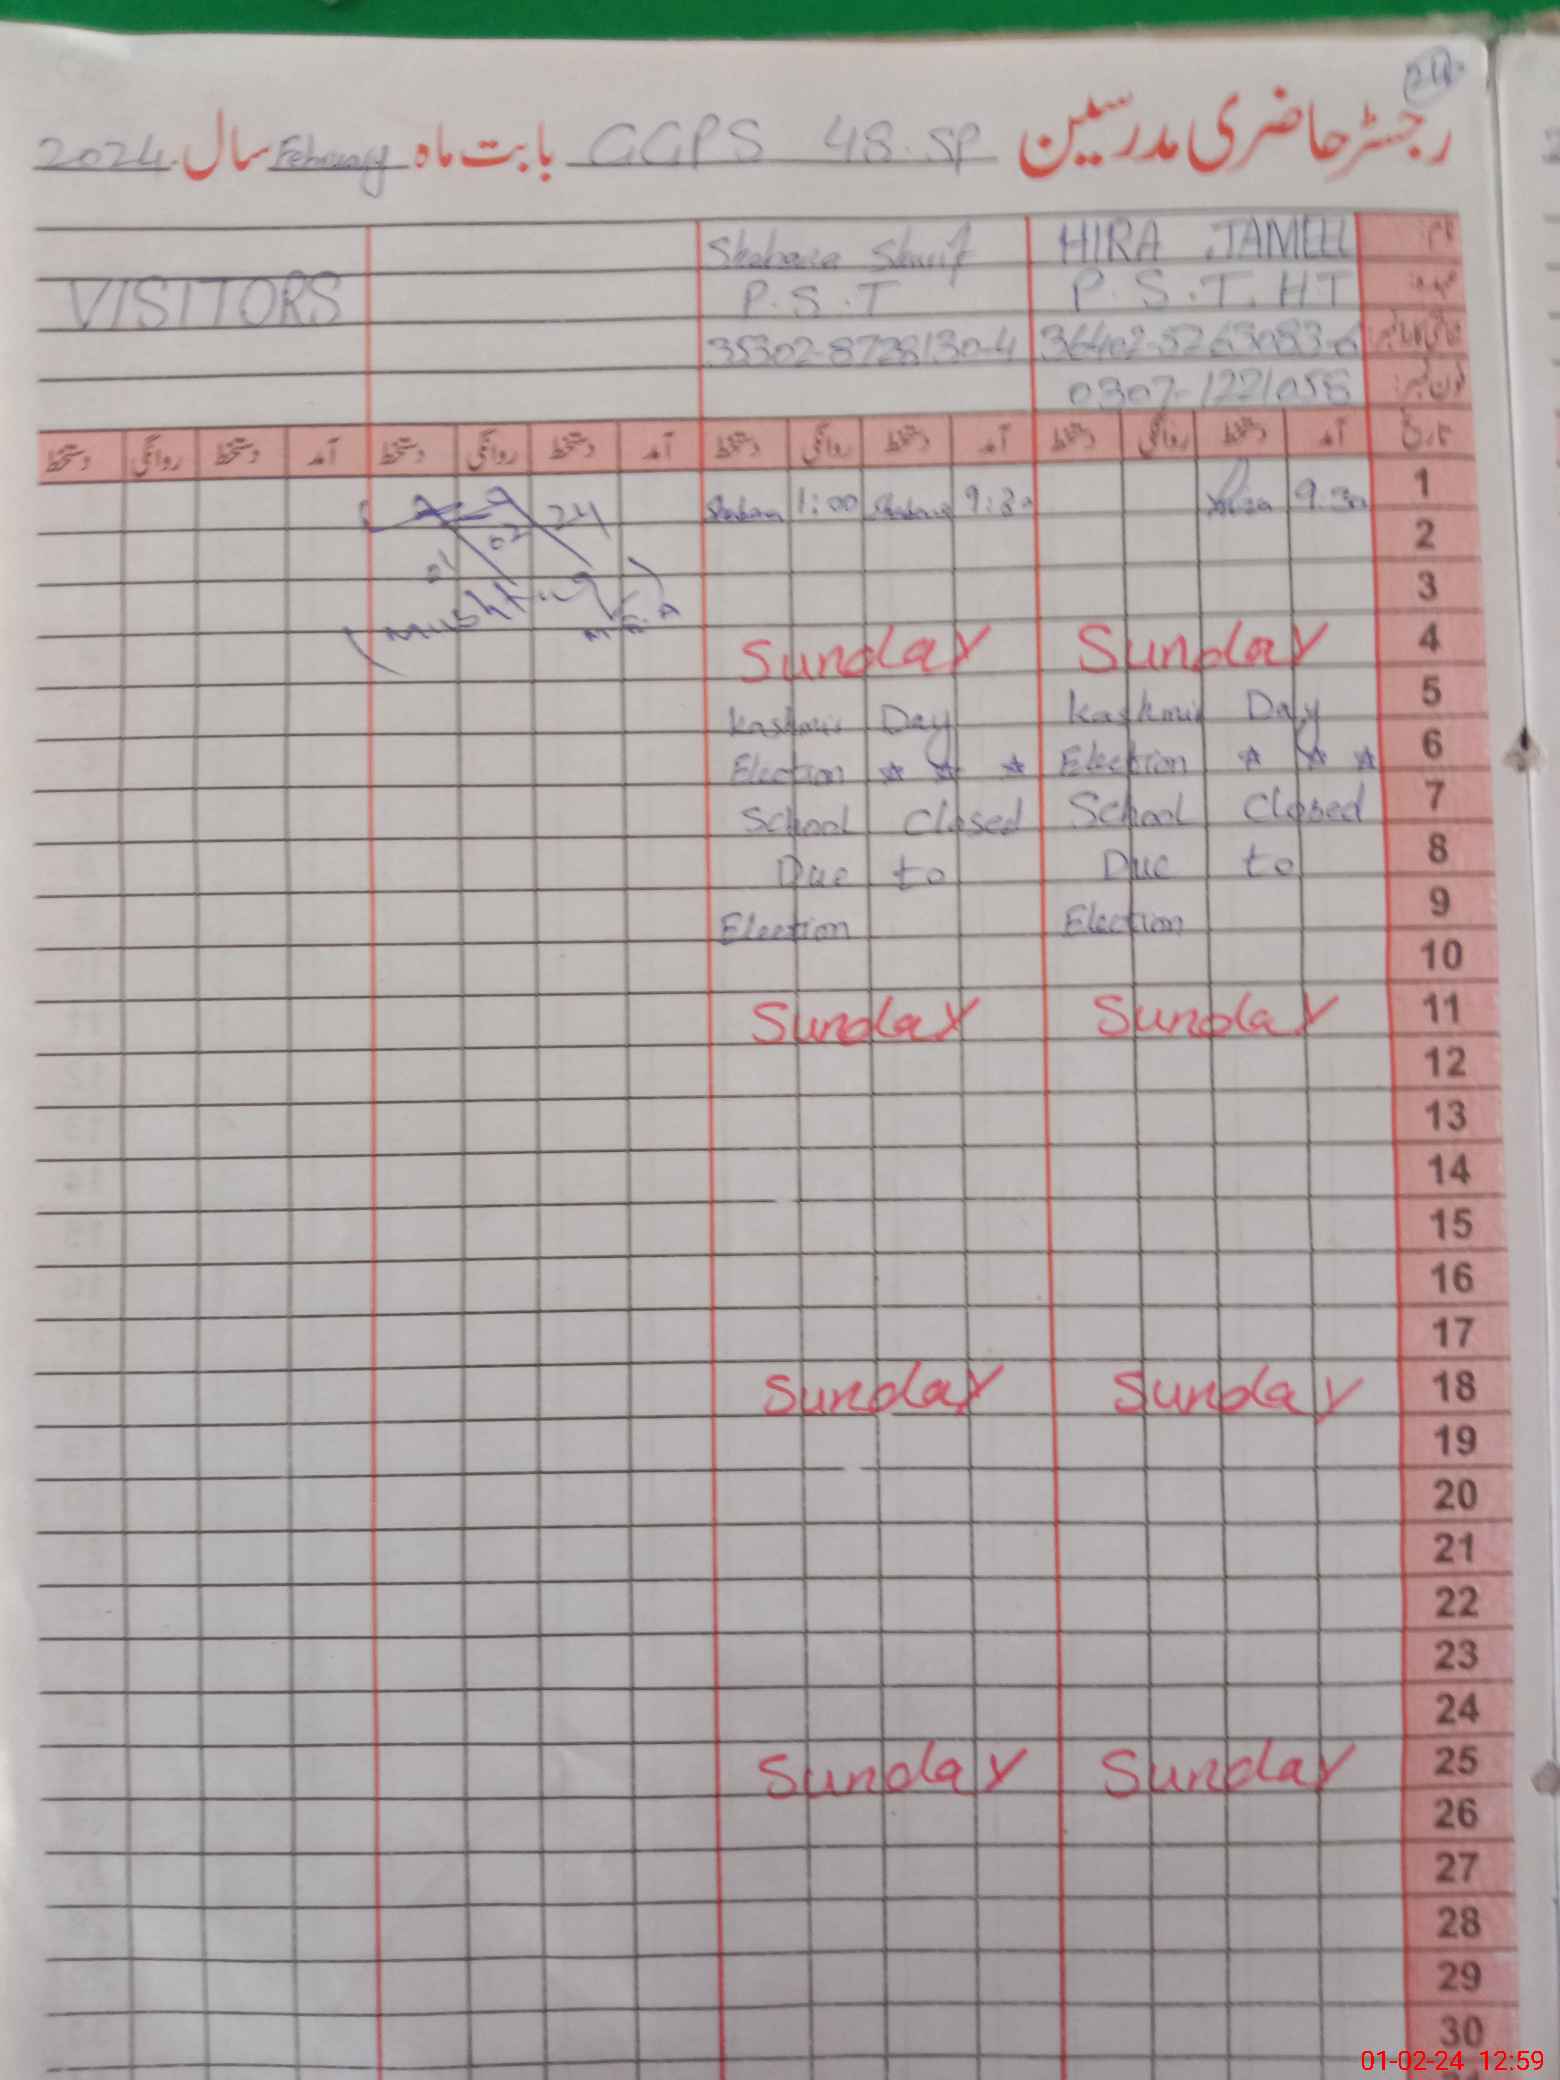 رجسٹر حاضری مدرسین GGPS 48.SP بابت ماہ February سال 2024
نام HIRA JAMEEL Shabana Sharif
عہدہ P.S.T. HT P.S.T VISITORS
36402-5263083-6 35302-8728130-4
فون نمبر: 0307-1221058
تاریخ آمد دستخط روانگی دستخط آمد دستخط روانگی دستخط آمد دستخط روانگی دستخط آمد دستخط روانگی دستخط
1 9.30 Hira 9:30 Shabana 1:00 Shabana
2 01 02 24
3 (Mushtaq MEA)
4 Sunday Sunday
5 Kashmir Day Kashmir Day
6 Election ☆ ☆ ☆ Election ☆ ☆ ☆
7 School Closed School Closed
8 Due to Due to
9 Election Election
10
11 Sunday Sunday
12
13
14
15
16
17
18 Sunday Sunday
19
20
21
22
23
24
25 Sunday Sunday
26
27
28
29
30
01-02-24 12:59